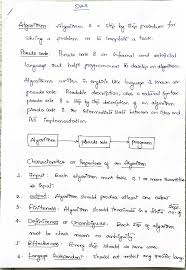 DAA
Algorithm: Algorithm is a step by step procedure for
solving a problem or to complete a task.
Pseudo code: Pseudo code is an informal and artificial
language that helps programmers to develop an algorithm.
Algorithms written in english like language is known as
pseudo code. Readable description, also, a natural syntax
pseudo code is a step by step description of an algorithm
pseudo code is a intermediate state between an idea and
its Implementation
Algorithm
pseudo code
program
Characteristics or Properties of an Algorithm
1. Input: Each algorithm must take 0, 1 or more quantities
as input
2. output: Algorithm should produce atleast one output
3. Finiteness: Algorithm should terminate in a finite no. of steps
4. Definiteness or Unambiguous: Each step of algorithm
must be clear means no ambiguity
5. Effectiveness: Every step should be
6. Language Independent: should not